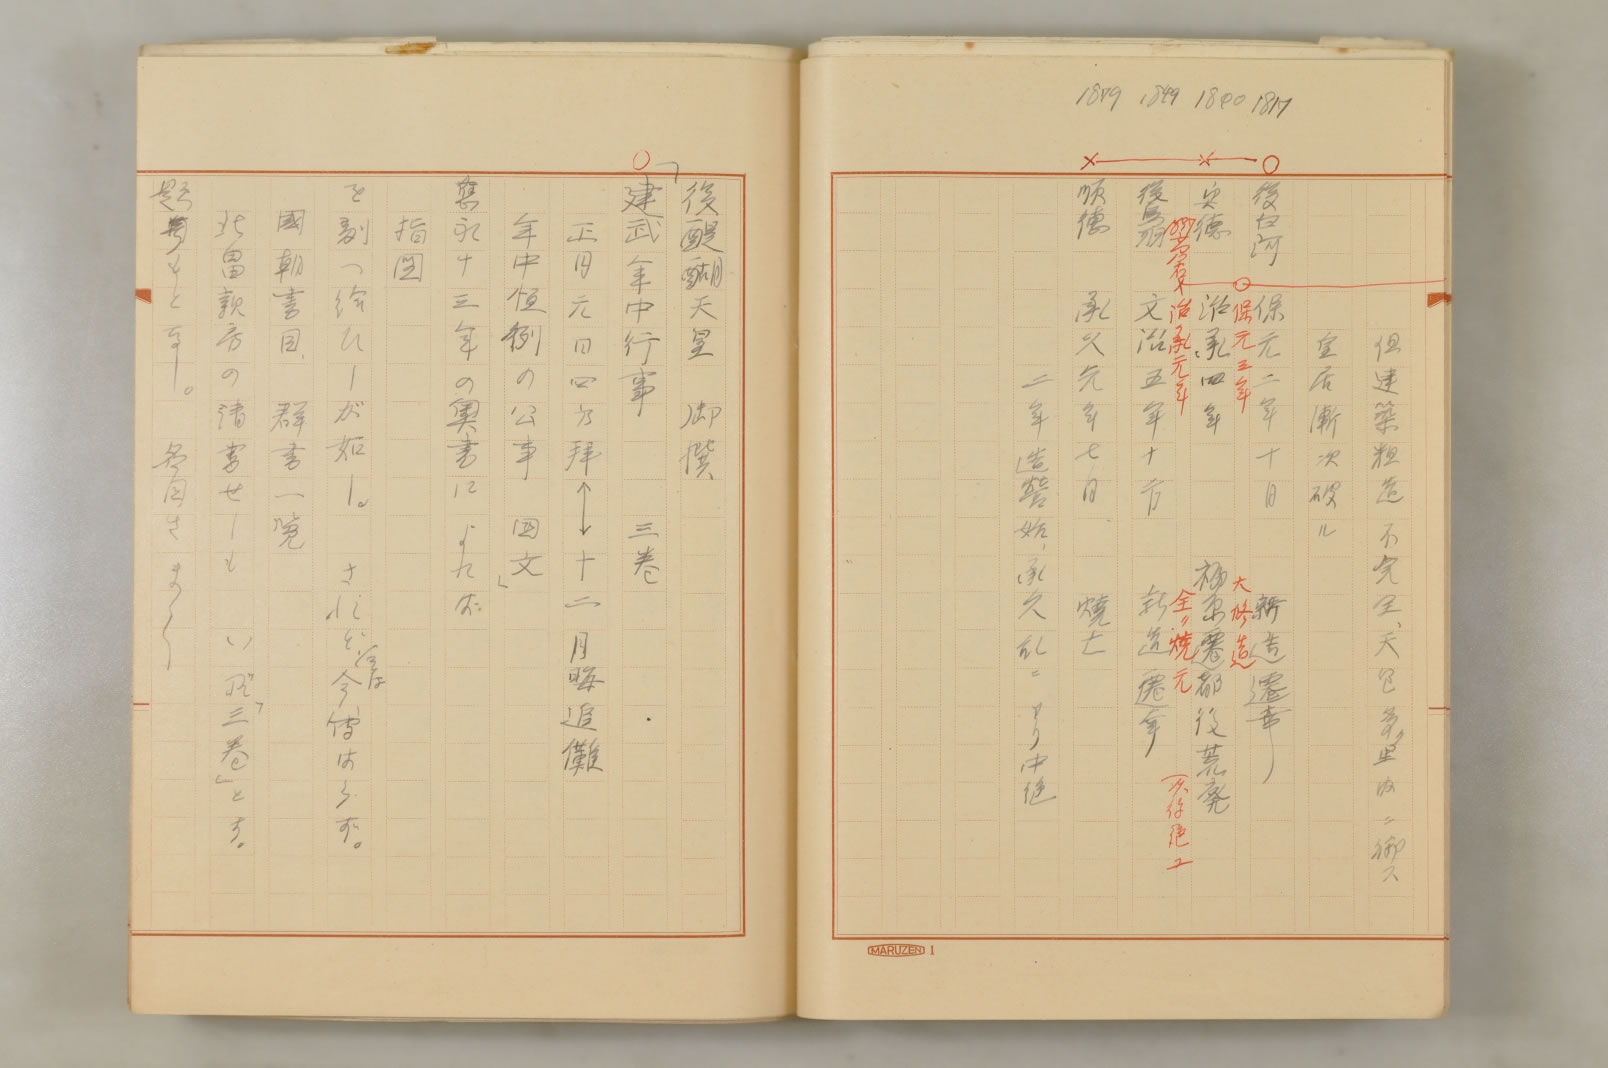 1817
1840
1849
1879
但建築粗造不完全、天皇多ク里内ニ御ス
皇居漸次破ル
後白河 保元二年十月 新造遷幸
保元三年 大修造
安徳 治承四年 福原遷都後荒廃
治承元年 全焼
後鳥羽 文治五年十一月 新造遷幸
順徳 承久元年七月 焼亡
二年造営始、承久乱ニヨリ中絶
MARUZEN 1
後醍醐天皇 御撰
「建武年中行事 三巻
正月元日四方拝↔十二月晦追儺
年中恒例の公事 国文」
奥永十三年の奥書によれば
指図
を副へ給ひしが如し。されど今は伝はらず。
國朝書目、群書一覧
北畠親房の諸書せしも い「三巻」とす。
題号もとなし。